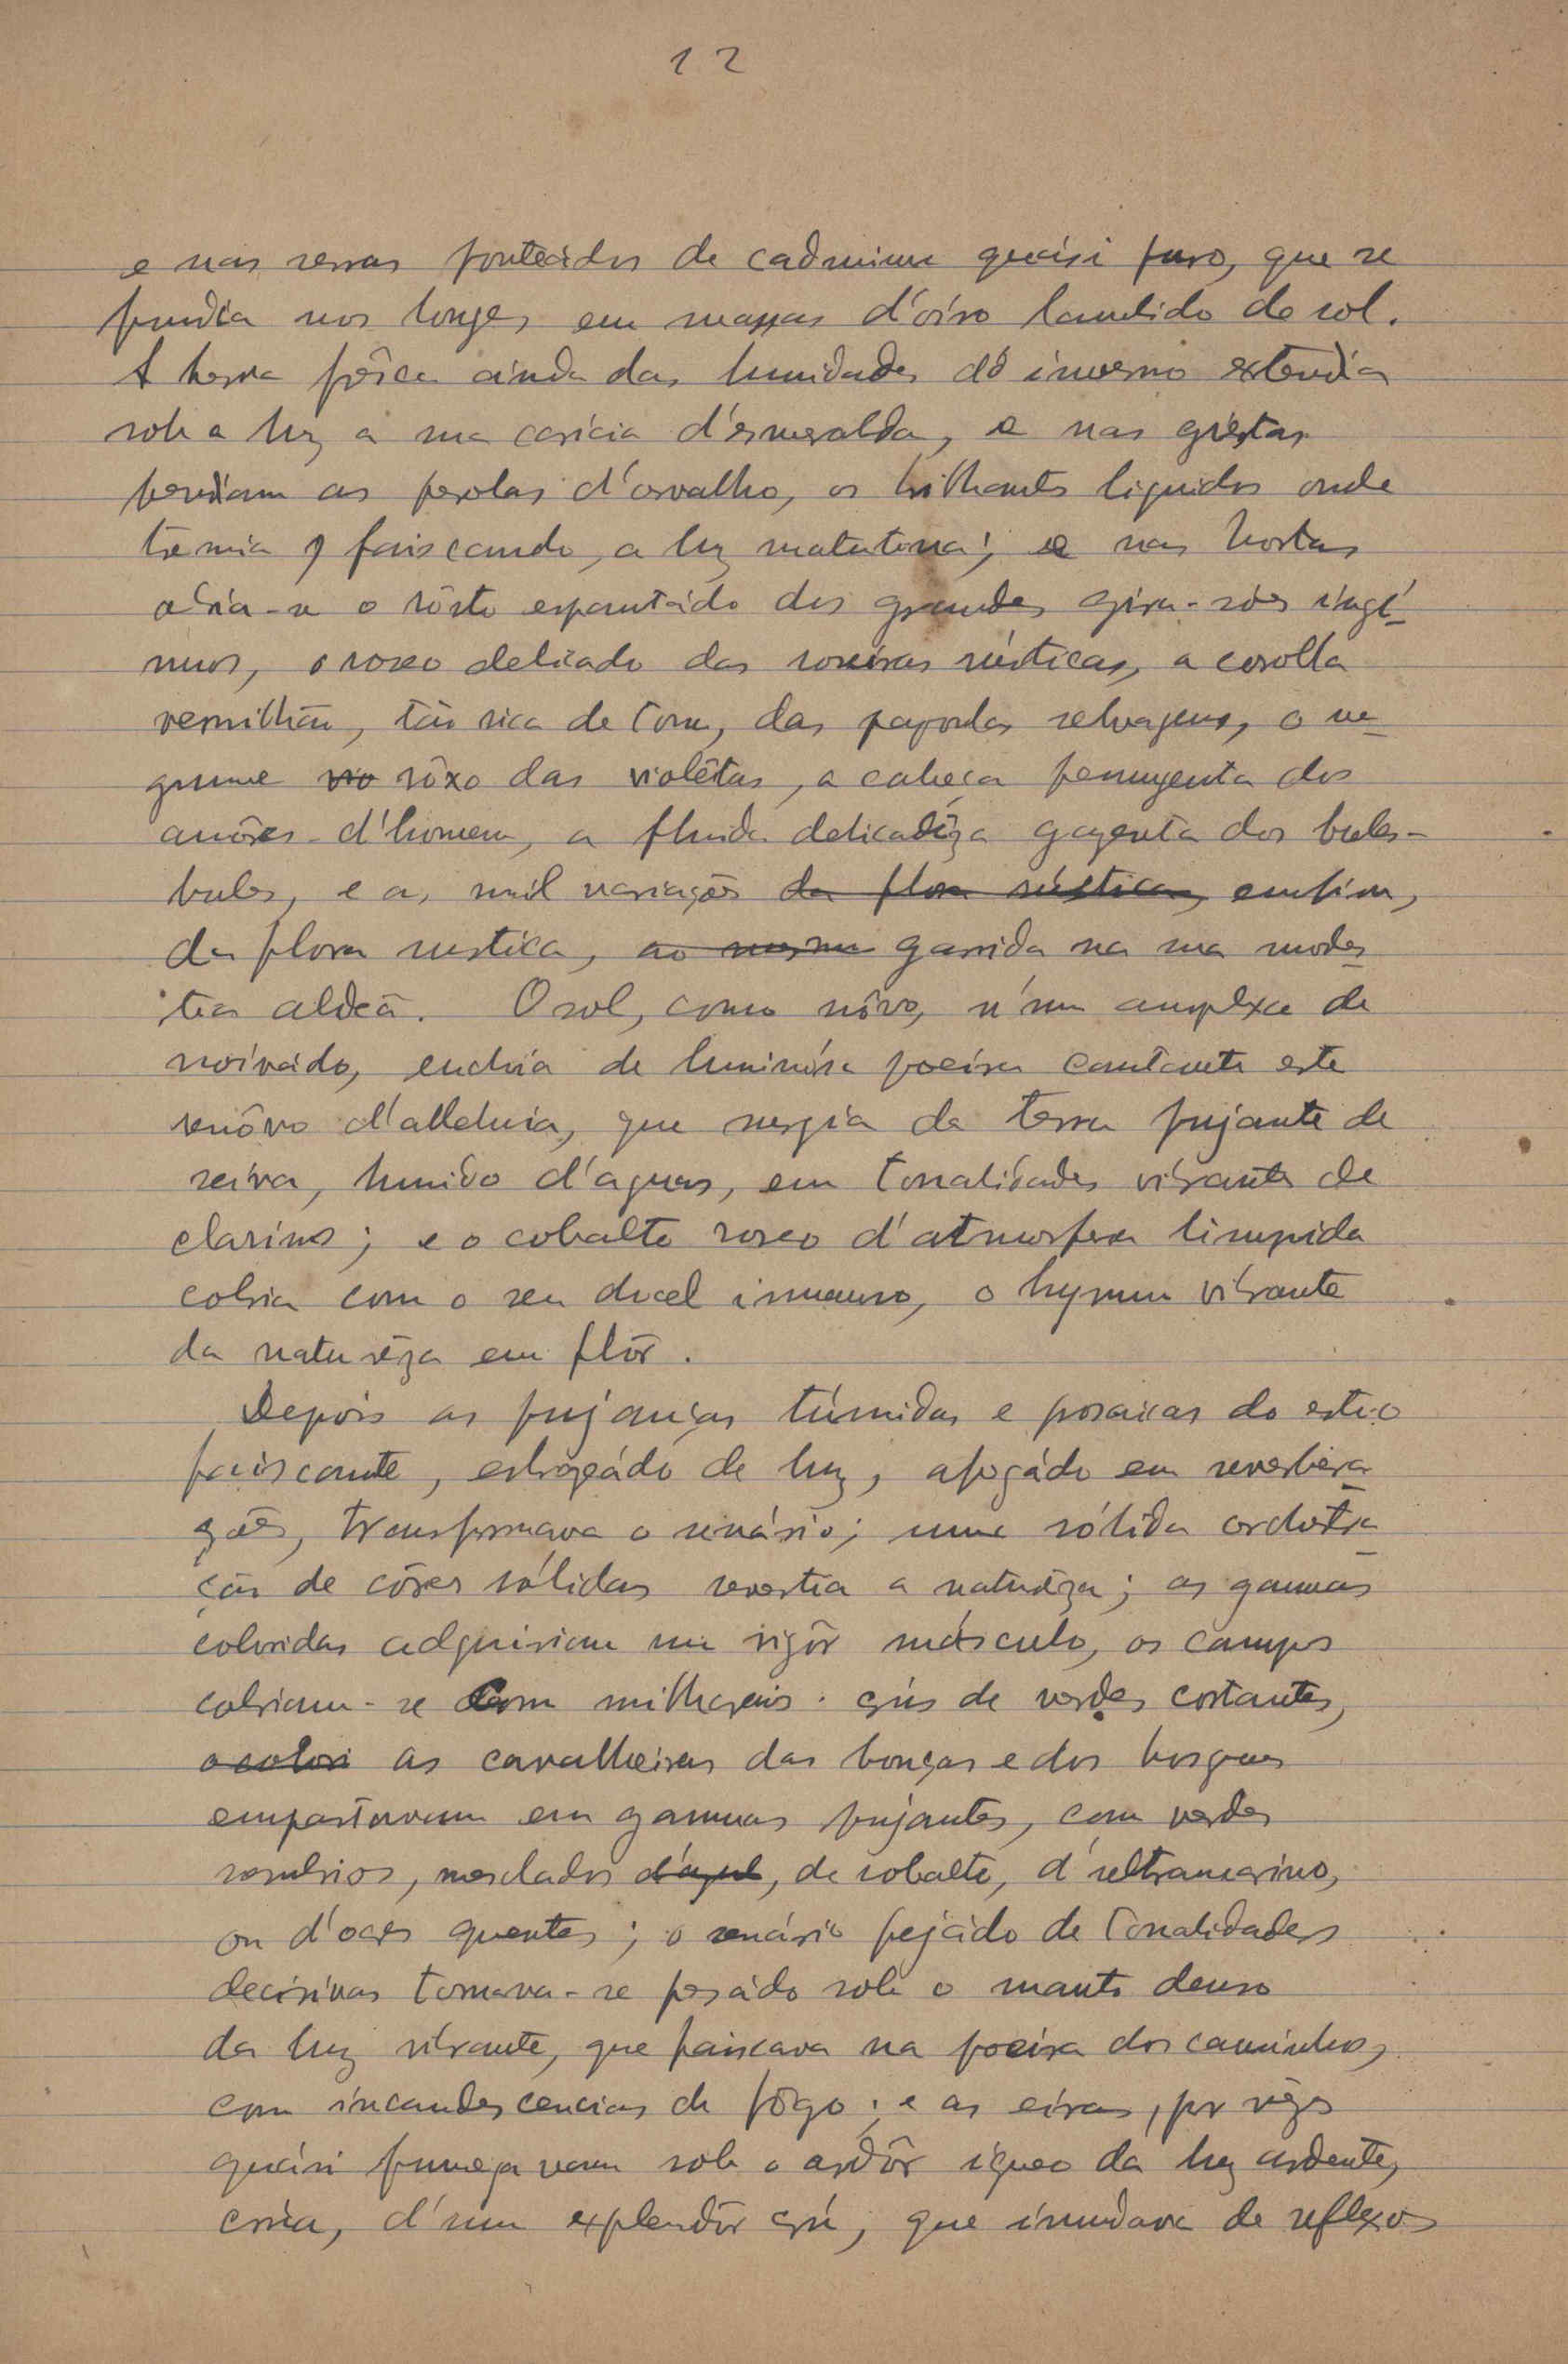 12
e nas serras ponteádos de cadmium quási puro, que se
fundia nos longes em massas d'óiro lambido do sol.
A herva frêsca ainda das humidades do inverno extendia
sob a luz a sua caricia d'esmeralda, e nas giestas
pendiam as perolas d'orvalho, os brilhantes liquidos onde
tremia, faiscando, a luz matutina; e nas hortas
abria-se o rôsto espantádo dos grandes gira-sóes ingé-
nuos, o roseo delicado das roseiras rústicas, a corolla
vermilhão, tão rica de tom, das papoulas selvagens, o ne-
grume vio rôxo das violêtas, a cabeça penugenta dos
amôres-d'homem, a fluida delicadêza gazenta dos bules-
bules, e as mil variações da flora rústica, emfim,
da flora rustica, ao mesmo garrida na sua modes-
tia aldeã. O sol, como nôvo, n'um amplexo de
noivádo, enchia de luminósa poeira cantante este
renôvo d'alleluia, que surgia da terra pujante de
seiva, humido d'aguas, em tonalidades vibrantes de
clarins; e o cobalto roseo d'atmosfera limpida
cobria com o seu docel immenso, o hymno vibrante
da naturêza em flôr.
Depois as pujanças túmidas e prosaicas do estio
faiscante, esbrazeádo de luz, afogádo em reverbera-
ções, transformava o scenário; uma sólida orchestra-
ção de côres sólidas revestia a naturêza; as gammas
coloridas adquiriam um vigôr másculo, os campos
cobriam-se com milharais crús de verdes cortantes,
o colori as carvalheiras das bouças e dos bosques
empastavam em gammas pujantes, com verdes
sombrios, mesclados d'azul, de cobalto, d'ultramarino,
ou d'ocres quentes; o scenário pejádo de tonalidades
decisivas tornava-se pesádo sob o manto denso
da luz vibrante, que faiscava na poeira dos caminhos,
com incandescencias de fôgo; e as eiras, por vêzes
quási fumegavam sob o ardôr igneo da luz ardente,
crúa, d'um explendôr crú, que inundava de reflexos